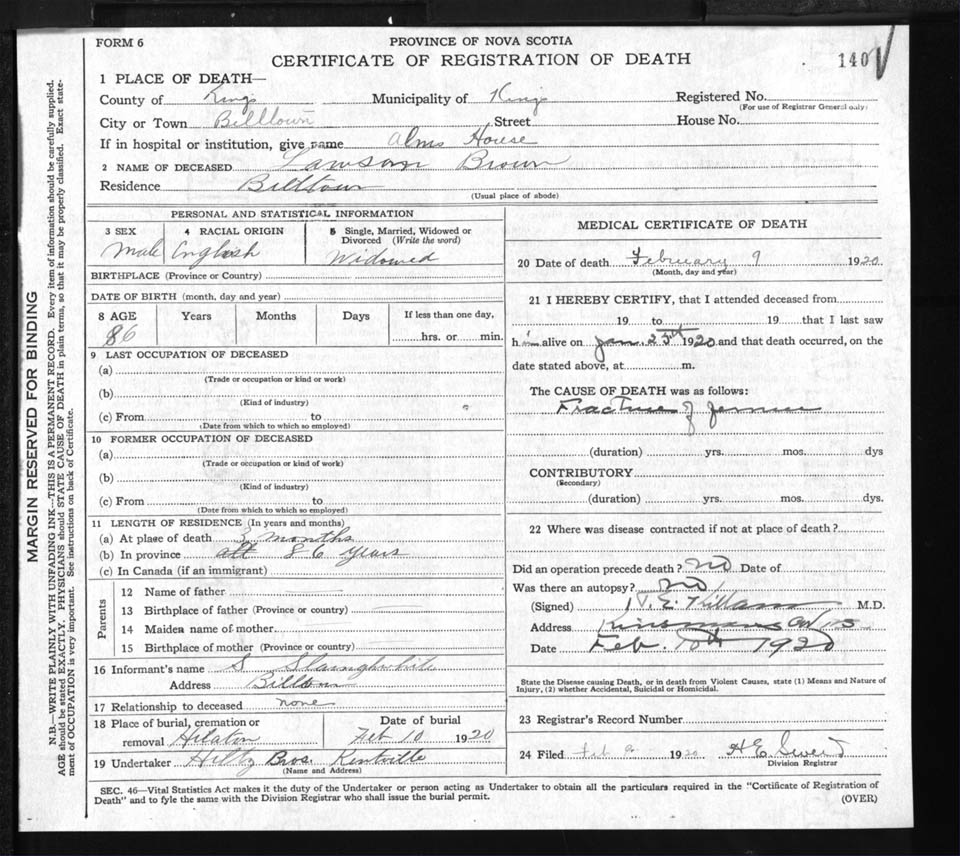 FORM 6
PROVINCE OF NOVA SCOTIA
CERTIFICATE OF REGISTRATION OF DEATH
140
1 PLACE OF DEATH—
County of Kings Municipality of Kings Registered No.
(For use of Registrar General only)
City or Town Billtown Street House No.
If in hospital or institution, give name Alms House
2 NAME OF DECEASED Lawson Brown
Residence Billtown
(Usual place of abode)
MARGIN RESERVED FOR BINDING
N.B.—WRITE PLAINLY WITH UNFADING INK—THIS IS A PERMANENT RECORD. Every item of information should be carefully supplied.
AGE should be stated EXACTLY. PHYSICIANS should STATE CAUSE OF DEATH in plain terms, so that it may be properly classified. Exact state-
ment of OCCUPATION is very important. See instructions on back of Certificate.
PERSONAL AND STATISTICAL INFORMATION
3 SEX 4 RACIAL ORIGIN 5 Single, Married, Widowed or
Divorced (Write the word)
Male English Widowed
BIRTHPLACE (Province or Country)
DATE OF BIRTH (month, day and year)
8 AGE Years Months Days If less than one day,
86 hrs. or min.
9 LAST OCCUPATION OF DECEASED
(a)
(Trade or occupation or kind or work)
(b)
(Kind of industry)
(c) From to
(Date from which to which so employed)
10 FORMER OCCUPATION OF DECEASED
(a)
(Trade or occupation or kind of work)
(b)
(Kind of industry)
(c) From to
(Date from which to which so employed)
11 LENGTH OF RESIDENCE (In years and months)
(a) At place of death 3 months
(b) In province all 86 years
(c) In Canada (if an immigrant)
Parents
12 Name of father
13 Birthplace of father (Province or country)
14 Maiden name of mother
15 Birthplace of mother (Province or country)
16 Informant's name S
Address Billtown
17 Relationship to deceased none
18 Place of burial, cremation or Date of burial
removal Feb 10 1920
19 Undertaker Hiltz Bros. Kentville
(Name and Address)
MEDICAL CERTIFICATE OF DEATH
20 Date of death February 9 1920
(Month, day and year)
21 I HEREBY CERTIFY, that I attended deceased from
19 to 19 that I last saw
him alive on Jan. 23rd 1920 and that death occurred, on the
date stated above, at m.
The CAUSE OF DEATH was as follows:
Fracture of
(duration) yrs. mos. dys
CONTRIBUTORY
(Secondary)
(duration) yrs. mos. dys.
22 Where was disease contracted if not at place of death?
Did an operation precede death? no Date of
Was there an autopsy? no
(Signed) M.D.
Address
Date Feb. 10th 1920
State the Disease causing Death, or in death from Violent Causes, state (1) Means and Nature of
Injury, (2) whether Accidental, Suicidal or Homicidal.
23 Registrar's Record Number
24 Filed Feb 1920
Division Registrar
SEC. 46—Vital Statistics Act makes it the duty of the Undertaker or person acting as Undertaker to obtain all the particulars required in the "Certificate of Registration of
Death" and to fyle the same with the Division Registrar who shall issue the burial permit.
(OVER)